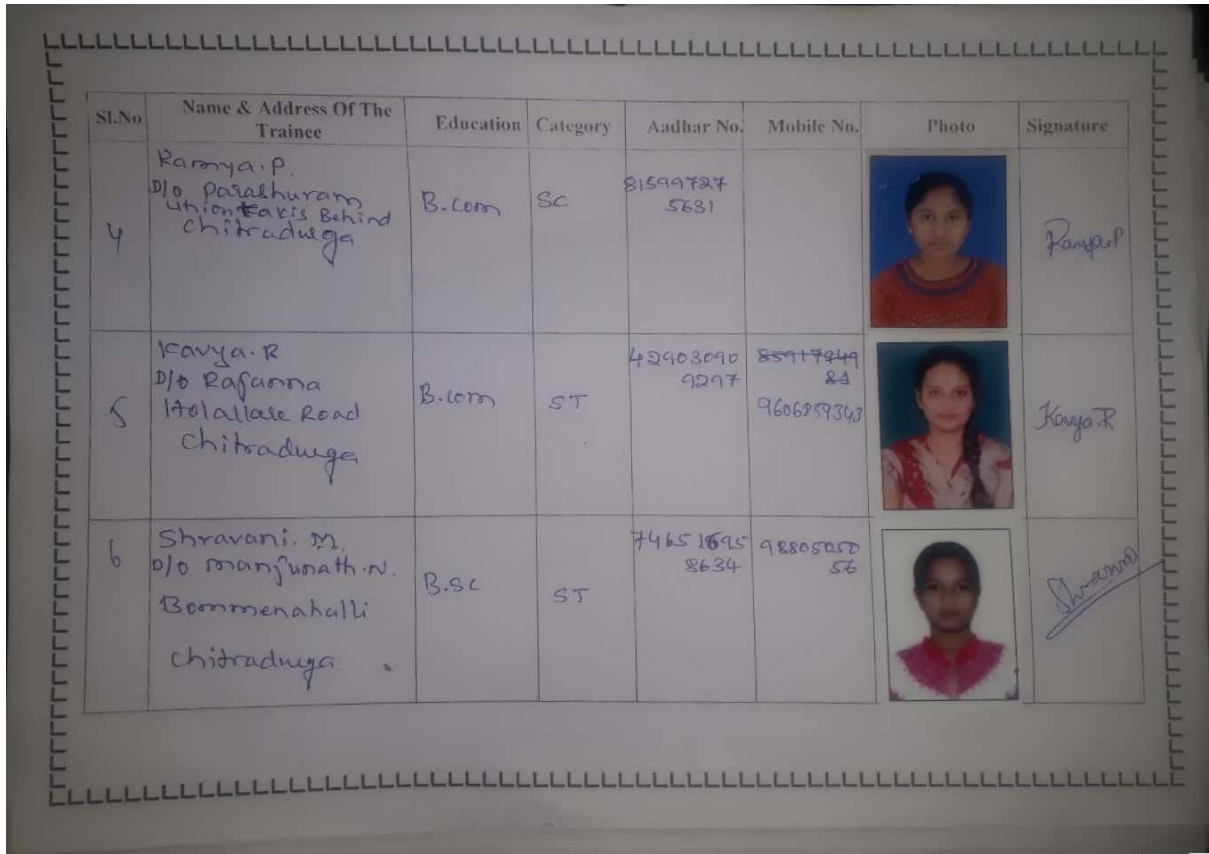 Sl.No Name & Address Of The Trainee Education Category Aadhar No. Mobile No. Photo Signature
4
Ramya.P.
D/o Parashuram
Union Behind
Chitradurga
B.com
SC
81599727
5631
Ramya.P
5
Kavya.R
D/o Rajanna
Holallare Road
Chitradurga
B.com
ST
42903090
9297
9606859343
Kavya.R
6
Shravani. M.
D/o Manjunath.N.
Bommenahalli
Chitradurga.
B.Sc
ST
8634
98805050
56